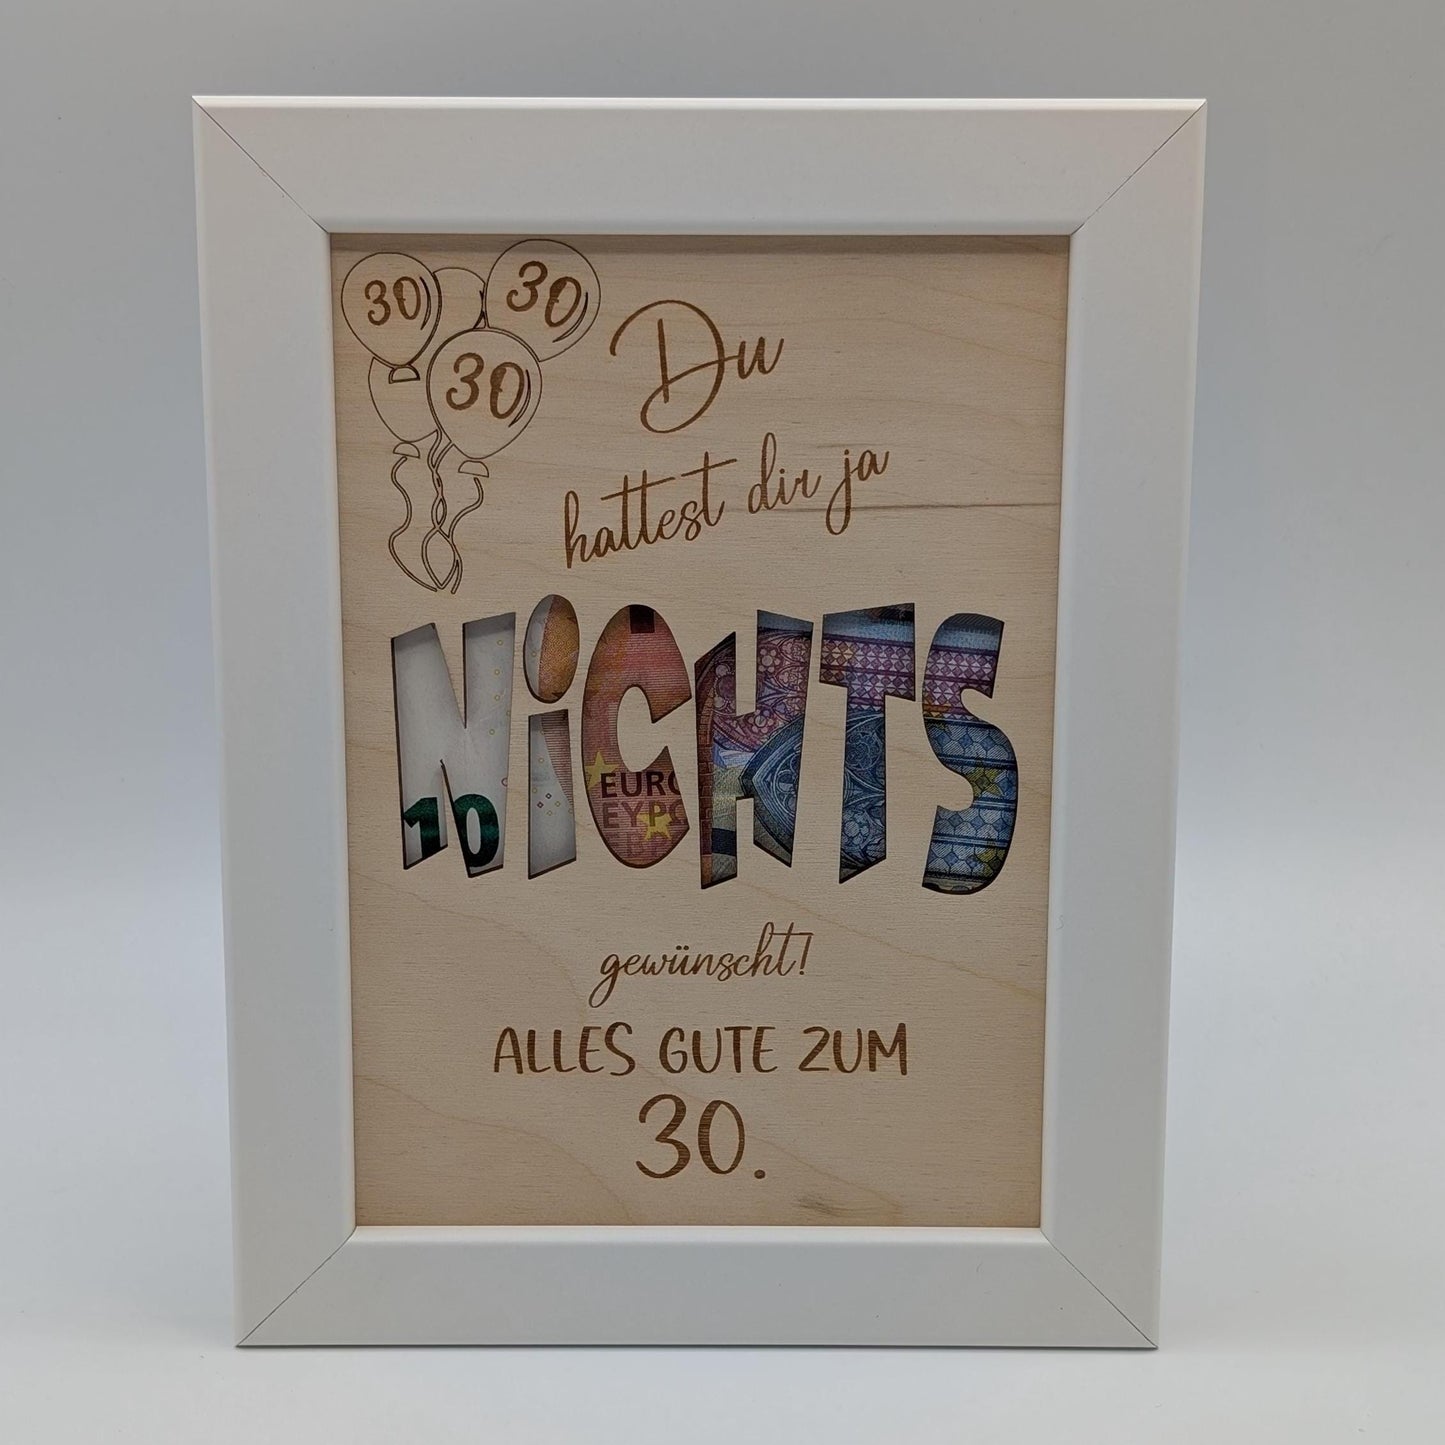 30
30
30
Du
hattest dir ja
NiCHTS
10
EURO
ΕΥΡΩ
gewünscht!
ALLES GUTE ZUM
30.